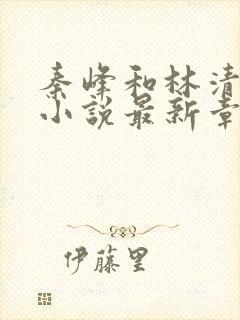 秦峰和林清
小說最新章
伊藤里